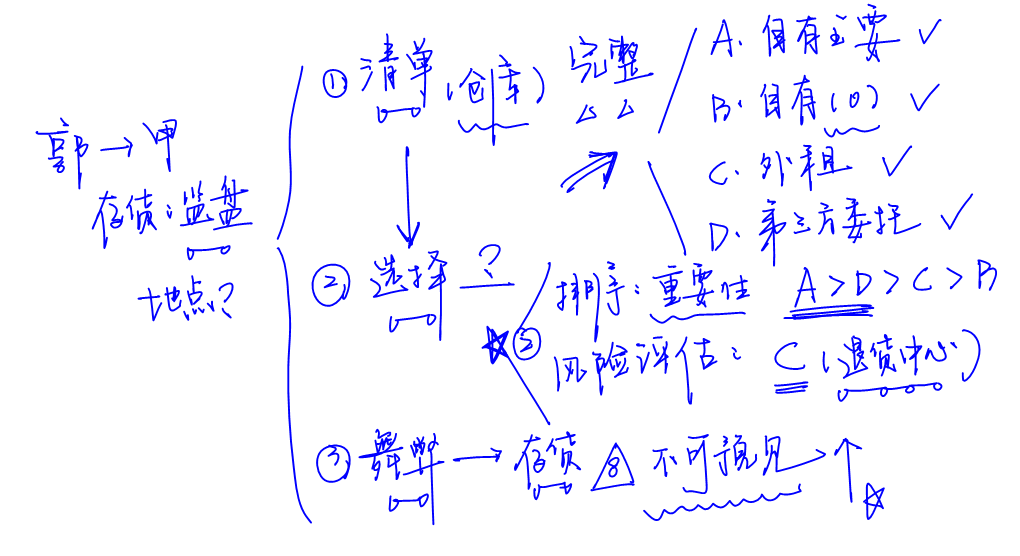 郭→甲
存货：监盘
地点？
① 清单（仓库）完整
A. 自有主要 ✓
B. 自有(0) ✓
C. 外租 ✓
D. 第三方委托 ✓
② 选择？
排序：重要性 A>D>C>B
② 风险评估：C（退货中心）
③ 舞弊→存货 8 不可预见→↑☆